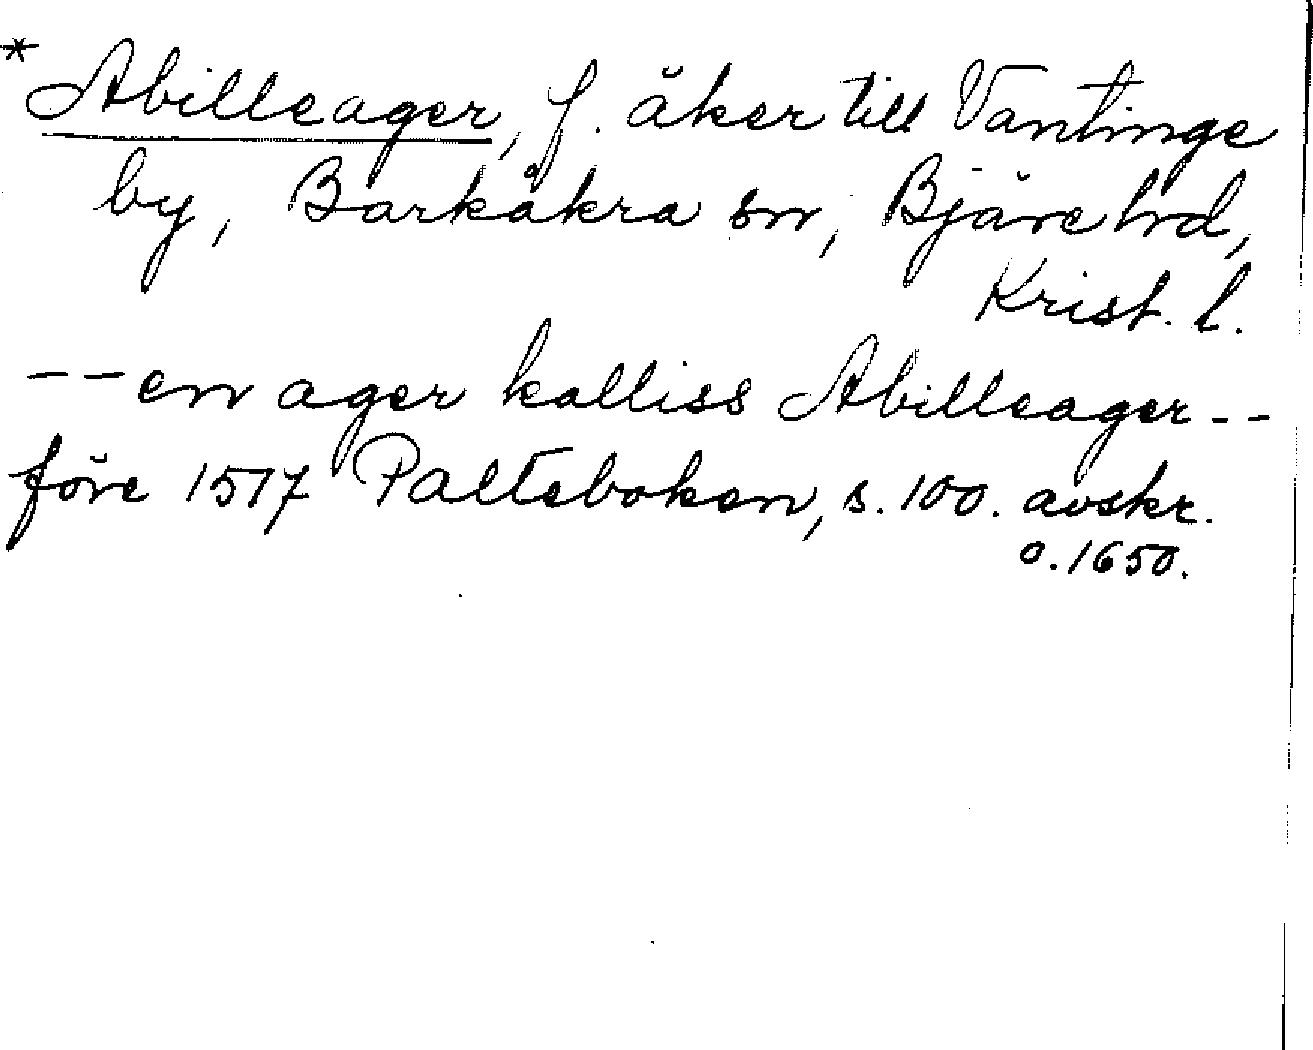 * Abilleager, f. åker till Vantinge
by, Barkåkra sn, Bjäre hd,
Krist. l.
-- en ager kalliss Abilleager --
före 1517 Palteboken, s. 100. avskr.
o. 1650.